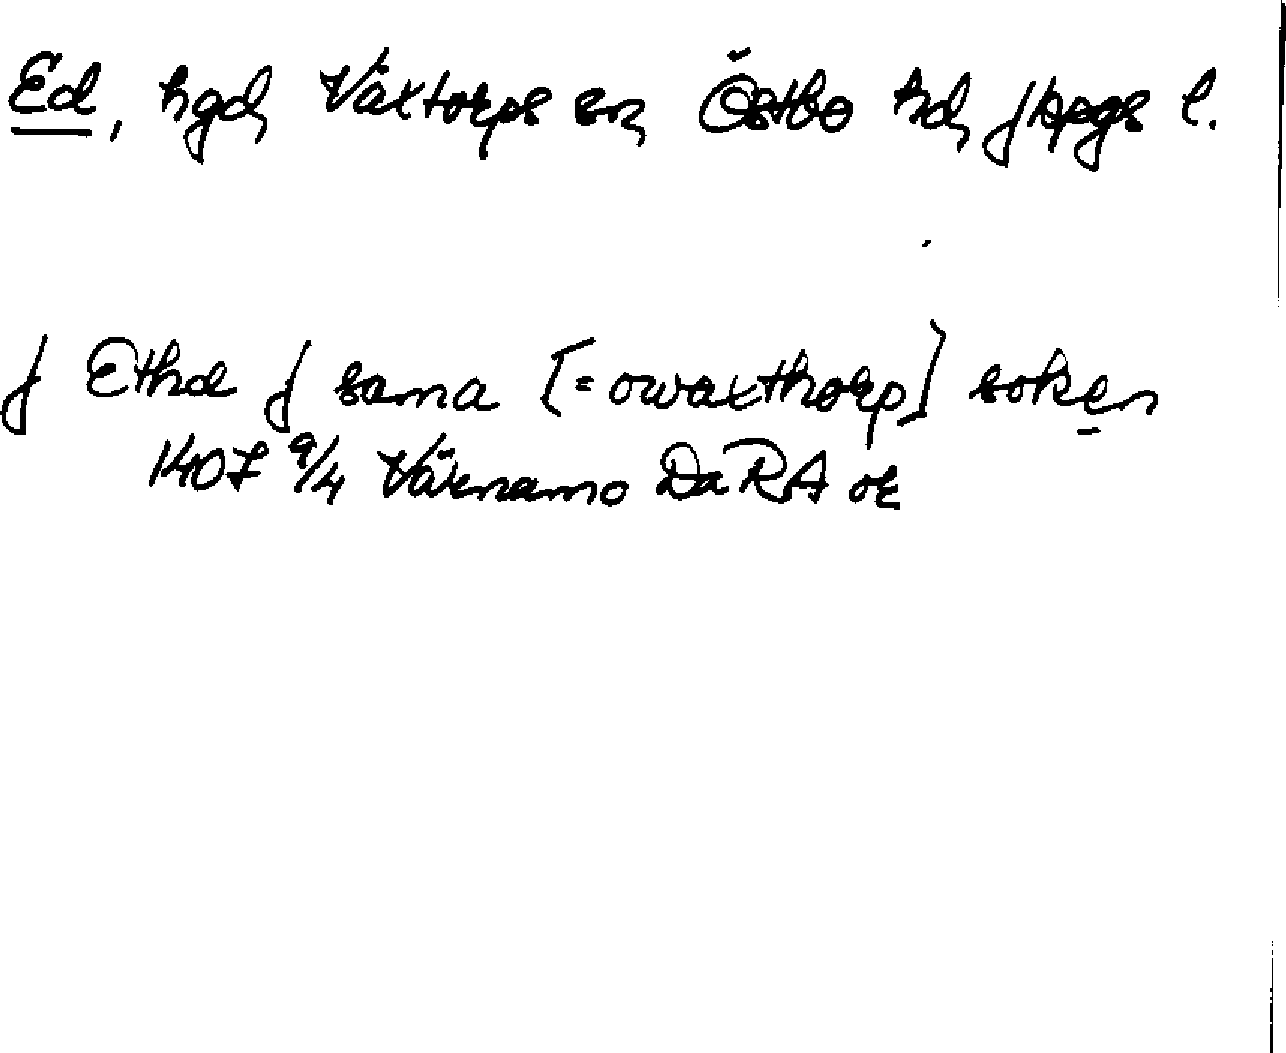 Ed, hgd, Växtorps sn, Östbo hd, Jkpgs l.
J Ethæ J sama [= owæxthorp] soken
1407 9/4 Värnamo Da RA or